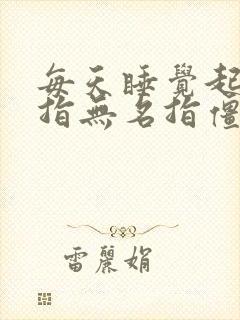 每天睡覺起
指無名指僵
雷麗娟